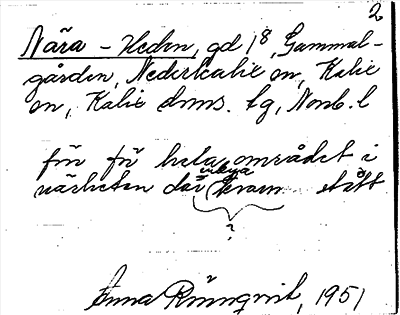 2
Nära-Heden, gd 1⁸, Gammal-
gården, Nederkalix sn, Kalix
sn, Kalix dms. lg, Nonb. l
förr för hela området i
närheten där kyrkan stått
?
Anna Rönnqvist, 1951